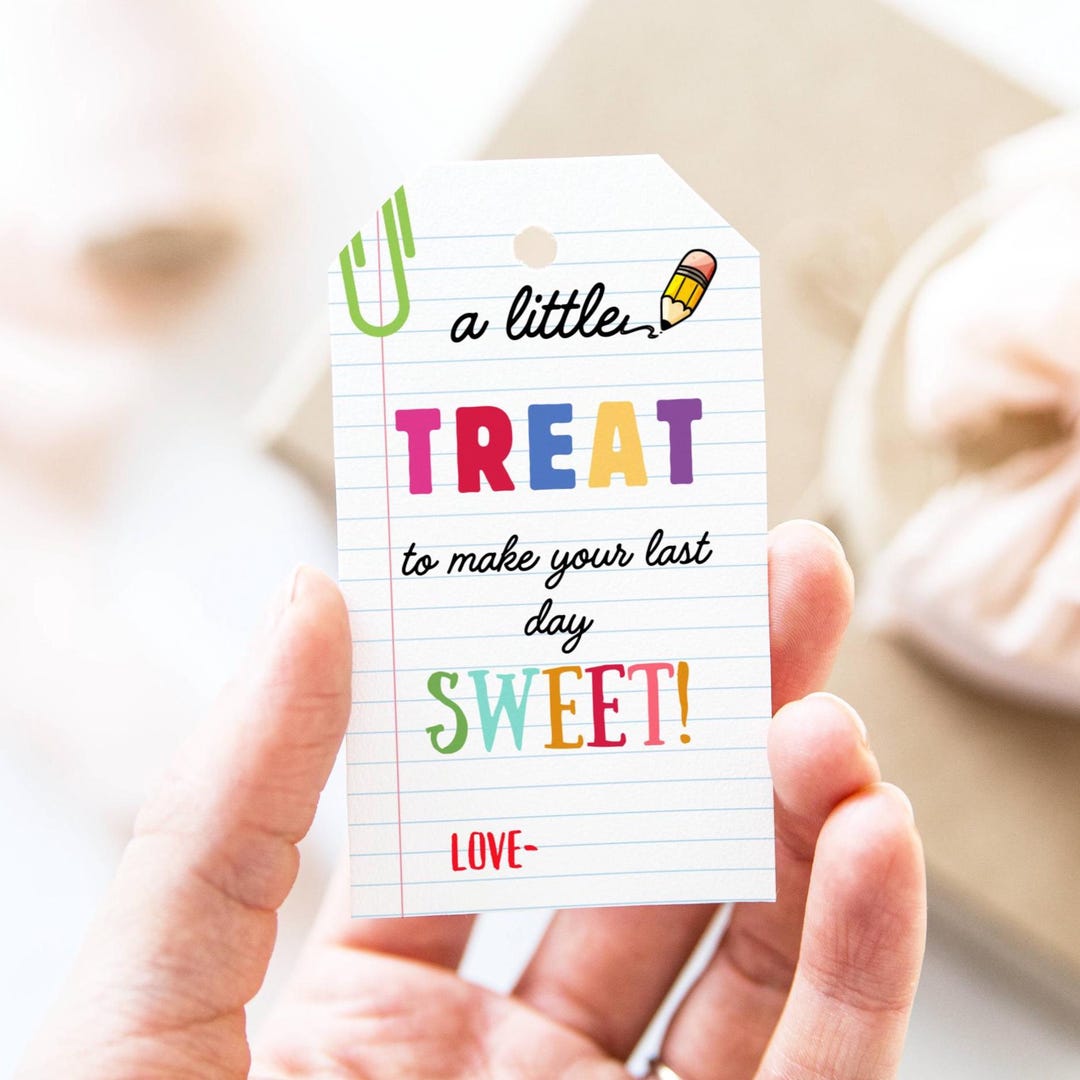 a little
TREAT
to make your last
day
SWEET!
LOVE-